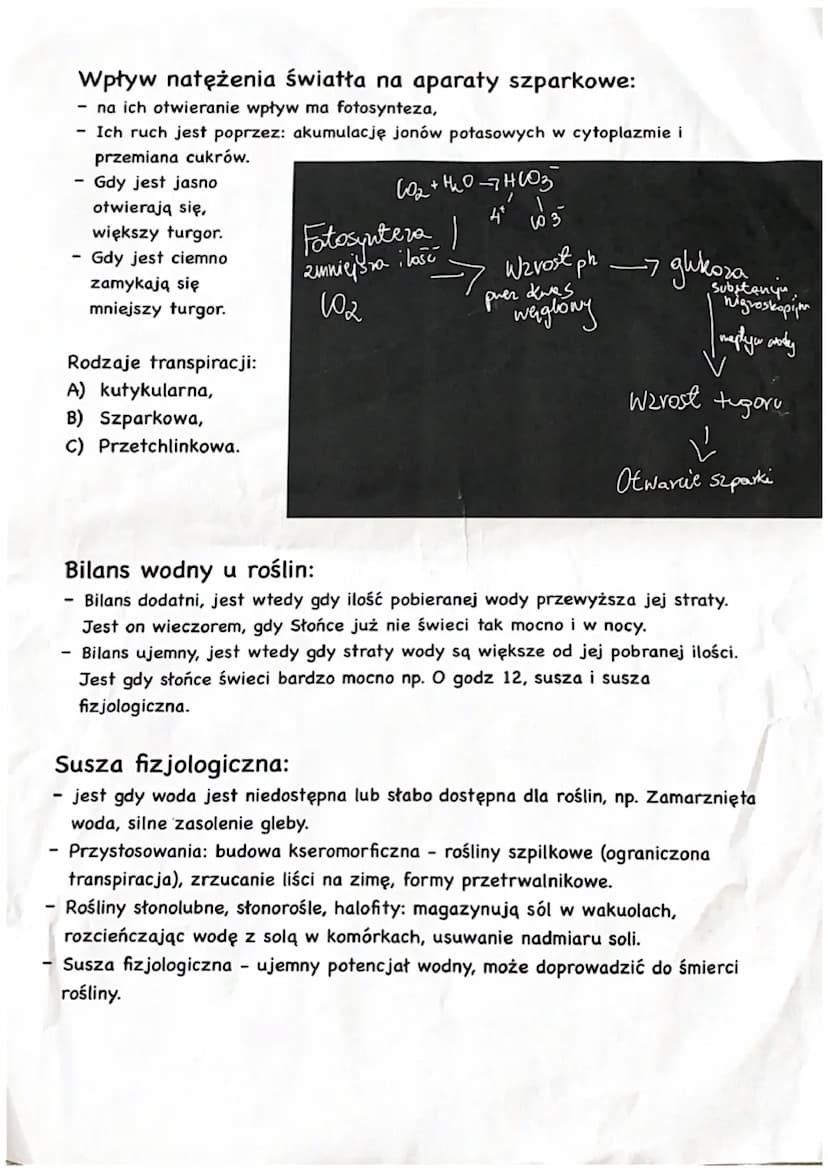 Wpływ natężenia światła na aparaty szparkowe:
- na ich otwieranie wpływ ma fotosynteza,
- Ich ruch jest poprzez: akumulację jonów potasowych w cytoplazmie i
przemiana cukrów.
- Gdy jest jasno
otwierają się,
większy turgor.
- Gdy jest ciemno
zamykają się
mniejszy turgor.
Rodzaje transpiracji:
A) kutykularna,
B) Szparkowa,
C) Przetchlinkowa.
CO2 + H2O → HCO3-
Fotosynteza
zmniejsza ilość
CO2
→ Wzrost ph
przez kwas
węglowy
→ glukoza
substancja
napływ wody
Wzrost tugoru
Otwarcie szparki
Bilans wodny u roślin:
- Bilans dodatni, jest wtedy gdy ilość pobieranej wody przewyższa jej straty.
Jest on wieczorem, gdy Słońce już nie świeci tak mocno i w nocy.
- Bilans ujemny, jest wtedy gdy straty wody są większe od jej pobranej ilości.
Jest gdy słońce świeci bardzo mocno np. O godz 12, susza i susza
fizjologiczna.
Susza fizjologiczna:
- jest gdy woda jest niedostępna lub słabo dostępna dla roślin, np. Zamarznięta
woda, silne zasolenie gleby.
- Przystosowania: budowa kseromorficzna - rośliny szpilkowe (ograniczona
transpiracja), zrzucanie liści na zimę, formy przetrwalnikowe.
- Rośliny słonolubne, słonorośle, halofity: magazynują sól w wakuolach,
rozcieńczając wodę z solą w komórkach, usuwanie nadmiaru soli.
- Susza fizjologiczna - ujemny potencjał wodny, może doprowadzić do śmierci
rośliny.